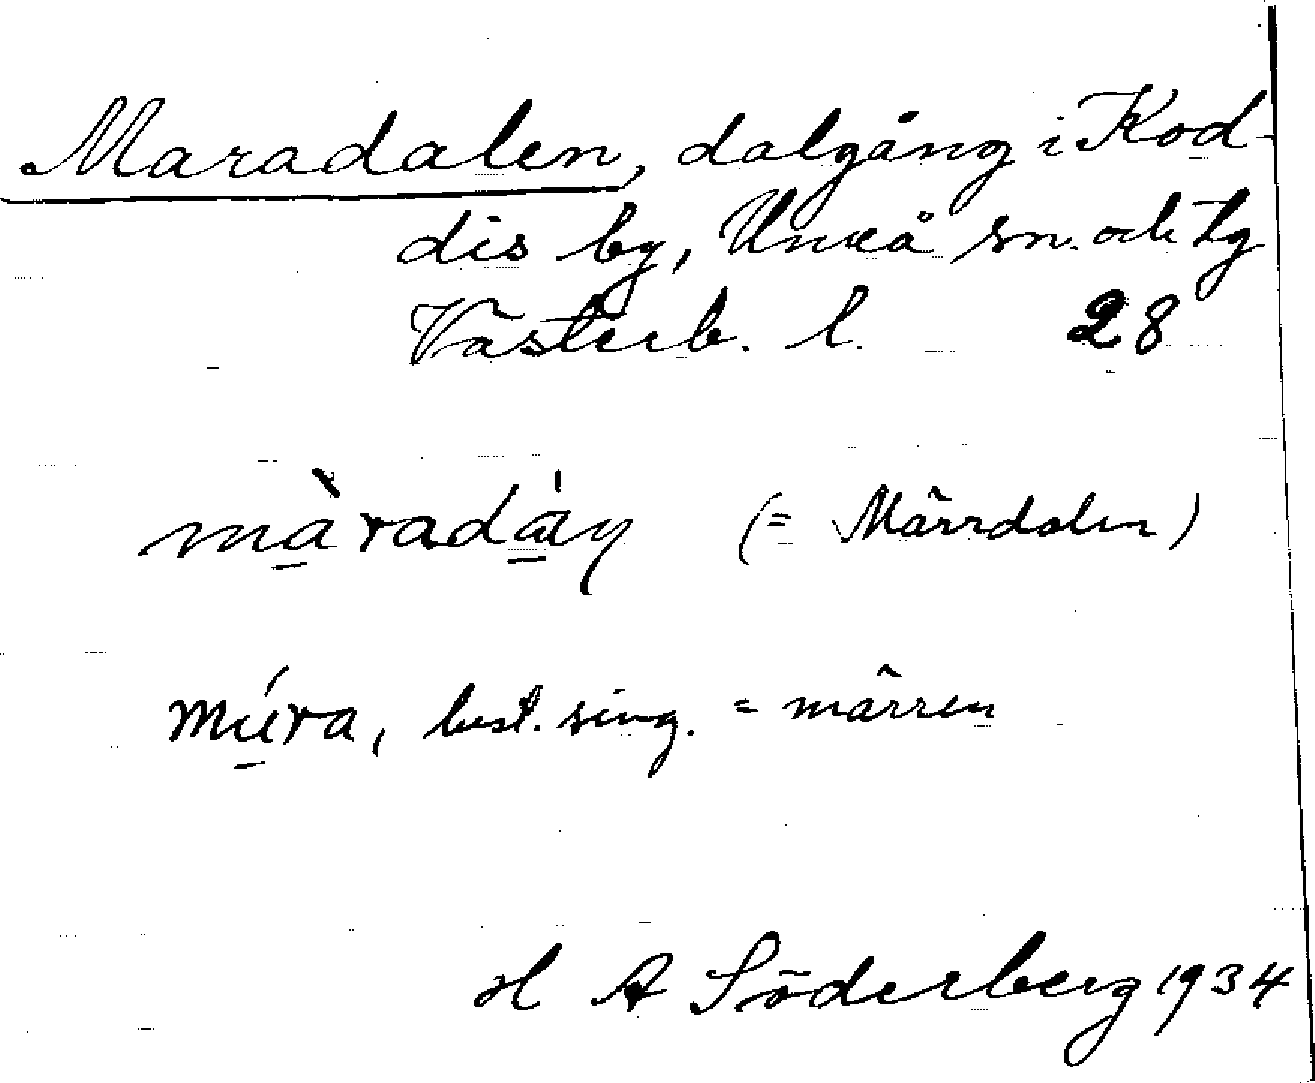 Maradalen, dalgång i Kod-
dis by, Umeå sn. och tg
Västerb. l. 28
màradáŋ (= Märrdalen)
múra, best. sing. = märren
H A Söderberg 1934